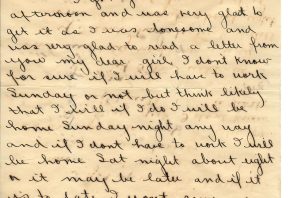 afternoon and was very glad to
get it as I was lonesome and
was very glad to read a letter from
you my dear girl I dont know
for sure if I will have to work
Sunday or not but think likely
that I will if I do I will be
home Sunday night any way
and if I dont have to work I will
be home Sat night about eight
or it may be later and if it
is to late I wont